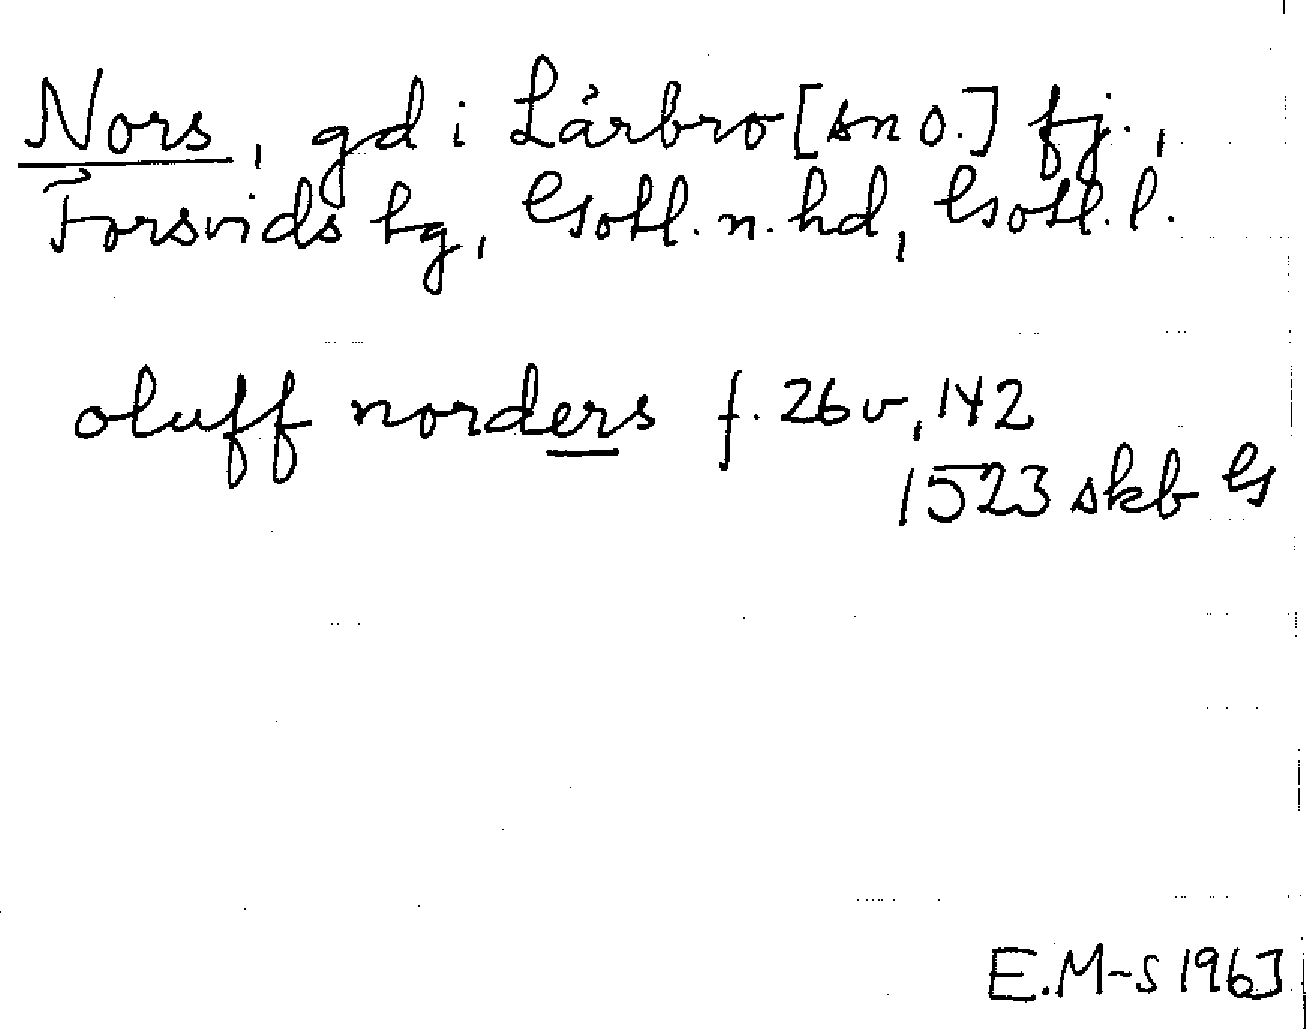 Nors, gd i Lärbro [sn o.] fj.,
Forsvids tg, Gotl. n. hd, Gotl. l.
oluff norders f. 26 v, 142
1523 skb G
E.M-S 1963